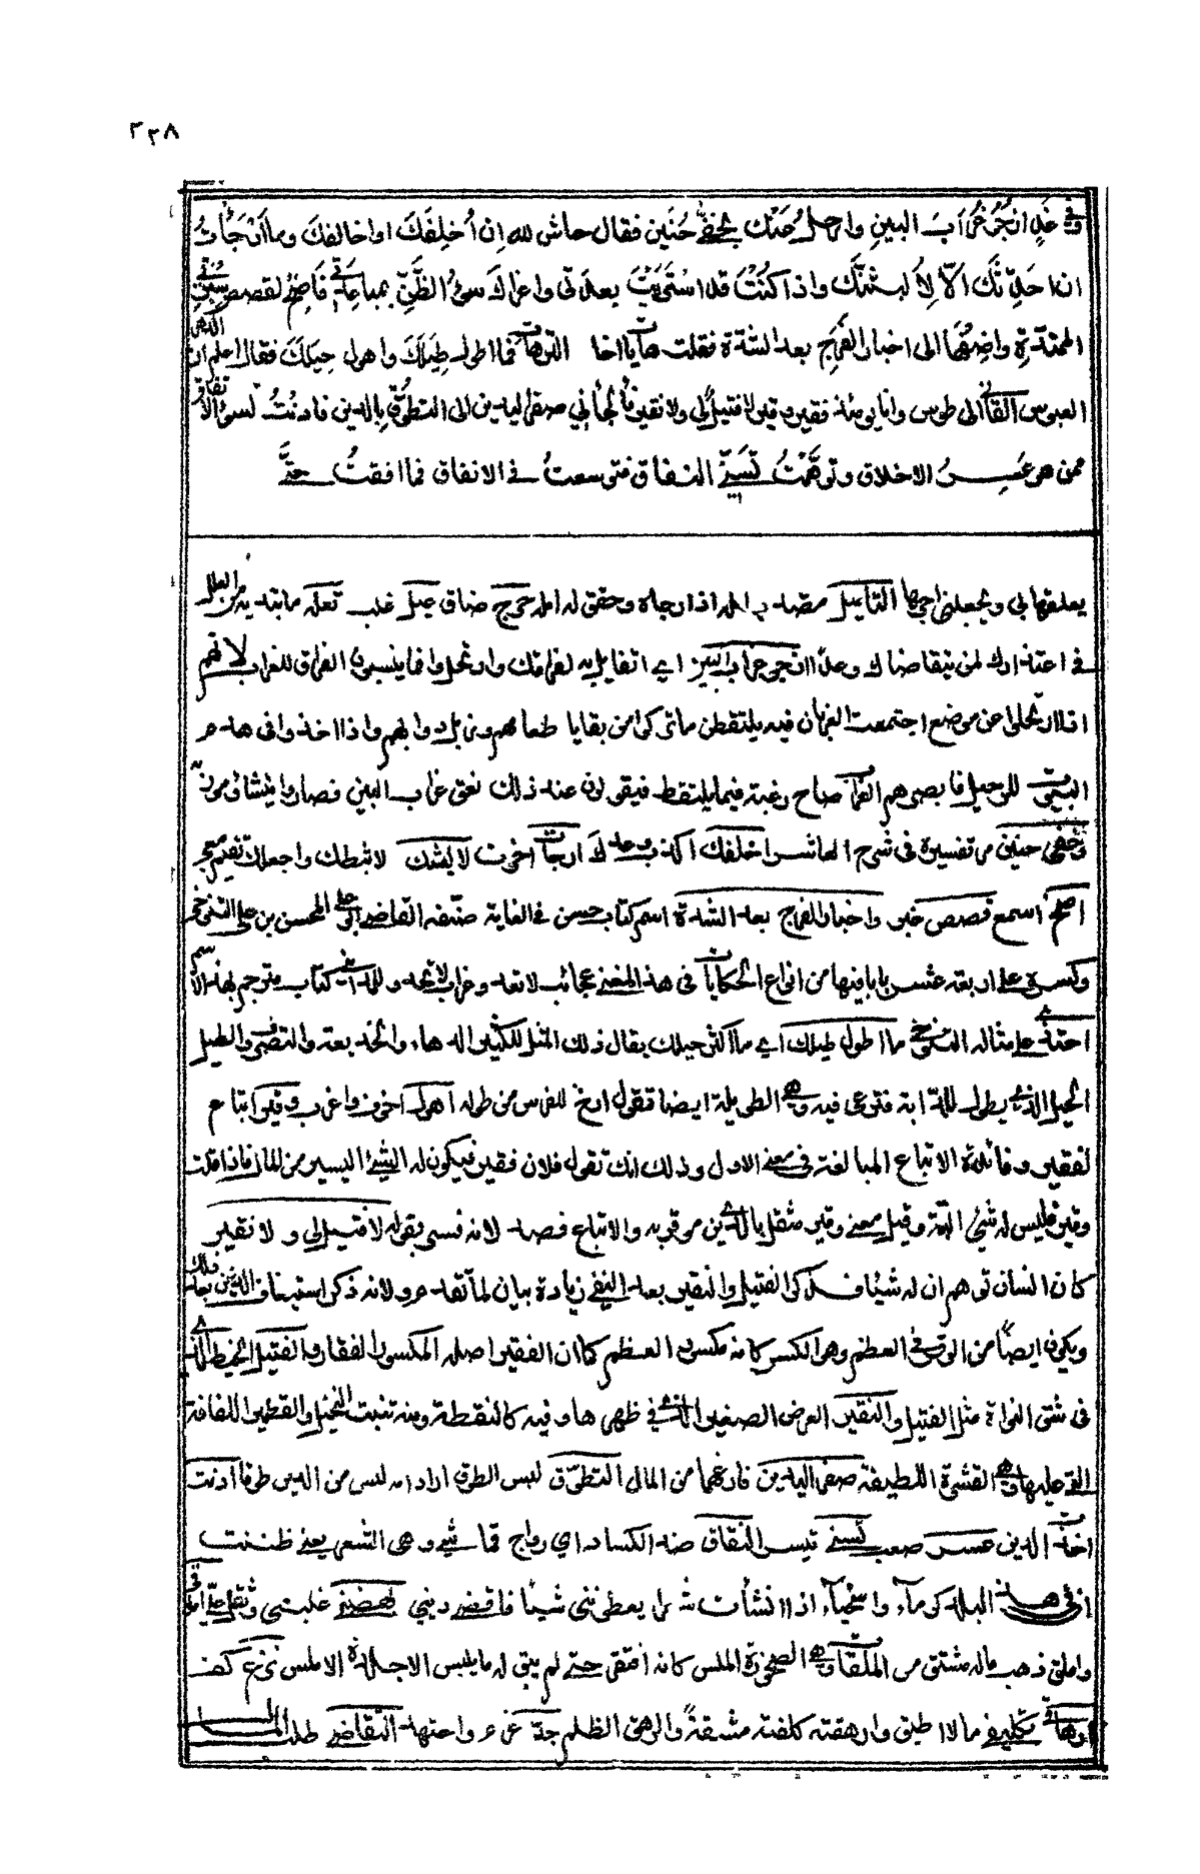 ٣٢٨
في غد ازجر غراب البين وارحل عنك بخفي حنين فقال حاش لله ان اخلفك او اخالفك وما ارجأت
ان احدثك الا لالبثك واذا كنت قد استربت بعدتي واغراك سوء الظن بمباعدتي فاصخ لقصص سيرتي
الممتدة واضفها الى اخبار الفرج بعد الشدة فقلت هات يا اخا الترهات فما اطول طيلك واهول حيلك فقال اعلم ان الدهر
العبوس القاني الى طوس وانا يومئذ فقير وقير لا فتيل لي ولا نقير فالجأني صفر اليدين الى التطوق بالدين فادنت لسوء الاتفاق
ممن هو عسر الاخلاق وتوهمت تسني النفاق فتوسعت في الانفاق فما افقت حتى
يعلقها بي ويجعلني احبها التأميل مصدر امله اذا رجاه وحقق له امله حرج ضاق عيل غلب تعله ما تبديه من العلل
في اعتذارك لمن يتقاضاك وعدا ازجر غراب البين اي اتفايل به لفراقك وارتحل وانما ينسبون الفراق للغراب لانهم
اذا ارتحلوا عن موضع اجتمعت الغربان فيه يلتقطن ما تركوا من بقايا طعامهم وزبل دوابهم واذا اخذوا في هدم
البيوت للرحيل فابصرهم الغراب صاح رغبة فيما يلتقط فيقولون عند ذلك نعق غراب البين فصاروا يتشاءمون به
وخفي حنين مر تفسيره في شرح العاشر اخلفك اكذب وعدك ارجأت اخرت لالبثك لابطئك واجعلك تقيم معي
اصخ اسمع قصص خبر واخبار الفرج بعد الشدة اسم كتاب حسن في الغاية صنفه القاضي ابو علي المحسن بن علي التنوخي
وكسره على اربعة عشر بابا فيها من انواع الحكايات في هذا المعنى عجائب لا تعد وغرائب لا تحد وللمدائني كتاب مترجم بهذا الاسم
احتذى على مثاله التنوخي ما اطول طيلك اي ما اكثر حيلك يقال ذلك المثل للكثير الدهاء والخديعة والتصرف والطيل
الحبل الذي يطول للدابة فترعى فيه وهي الطويلة ايضا تقول ارخ للفرس من طوله اهول اخوف واغرب وقير اتباع
لفقير وفائدة الاتباع المبالغة في معنى الاول وذلك انك تقول فلان فقير فيكون له الشيء اليسير من المال فاذا قلت
وقير فليس له شيء البتة وقيل معنى وقير مثقل بالدين موقر به والاتباع فصد لانه فسر بقوله لا فتيل لي ولا نقير
كان انسان توهم ان له شيئا فذكر الفتيل والنقير بعد النفي زيادة بيان لما تقدم ولانه ذكر استيناف الدين بعد ذلك
ويكون ايضا من الوقر في العظم وهو الكسر كانه مكسور العظم كما ان الفقير اصله المكسور الفقار والفتيل الخيط الذي
في شق النواة مثل الفتيل والنقير العرض الصغير الذي في ظهرها وفيه كالنقطة ومنه تنبت النخيل والقطمير اللفافة
التي عليها وهي القشرة اللطيفة صفر اليدين فارغهما من المال التطوق لبس الطوق اراد انه لبس من الدين طوقا ادنت
اخذت الدين عسر صعب تسني تيسر النفاق ضد الكساد اي رواج قماشي وهي الشعر يعني ظننت
ان في هذه البلد كرماء واسخياء اذا انشأت شعرا يعطونني شيئا فاقضي ديني بهضني غلبني وثقل علي املق
واملق ذهب ماله مشتق من الملقات وهي الصخرة الملس كانه افتقر حتى لم يبق له ما يلبس الا جلده الاملس نزع كف
ارهاقي تكليفي ما لا اطيق وارهقته كلفته مشقة والرهق الظلم جد عزم واجتهد التقاضي طلب المال